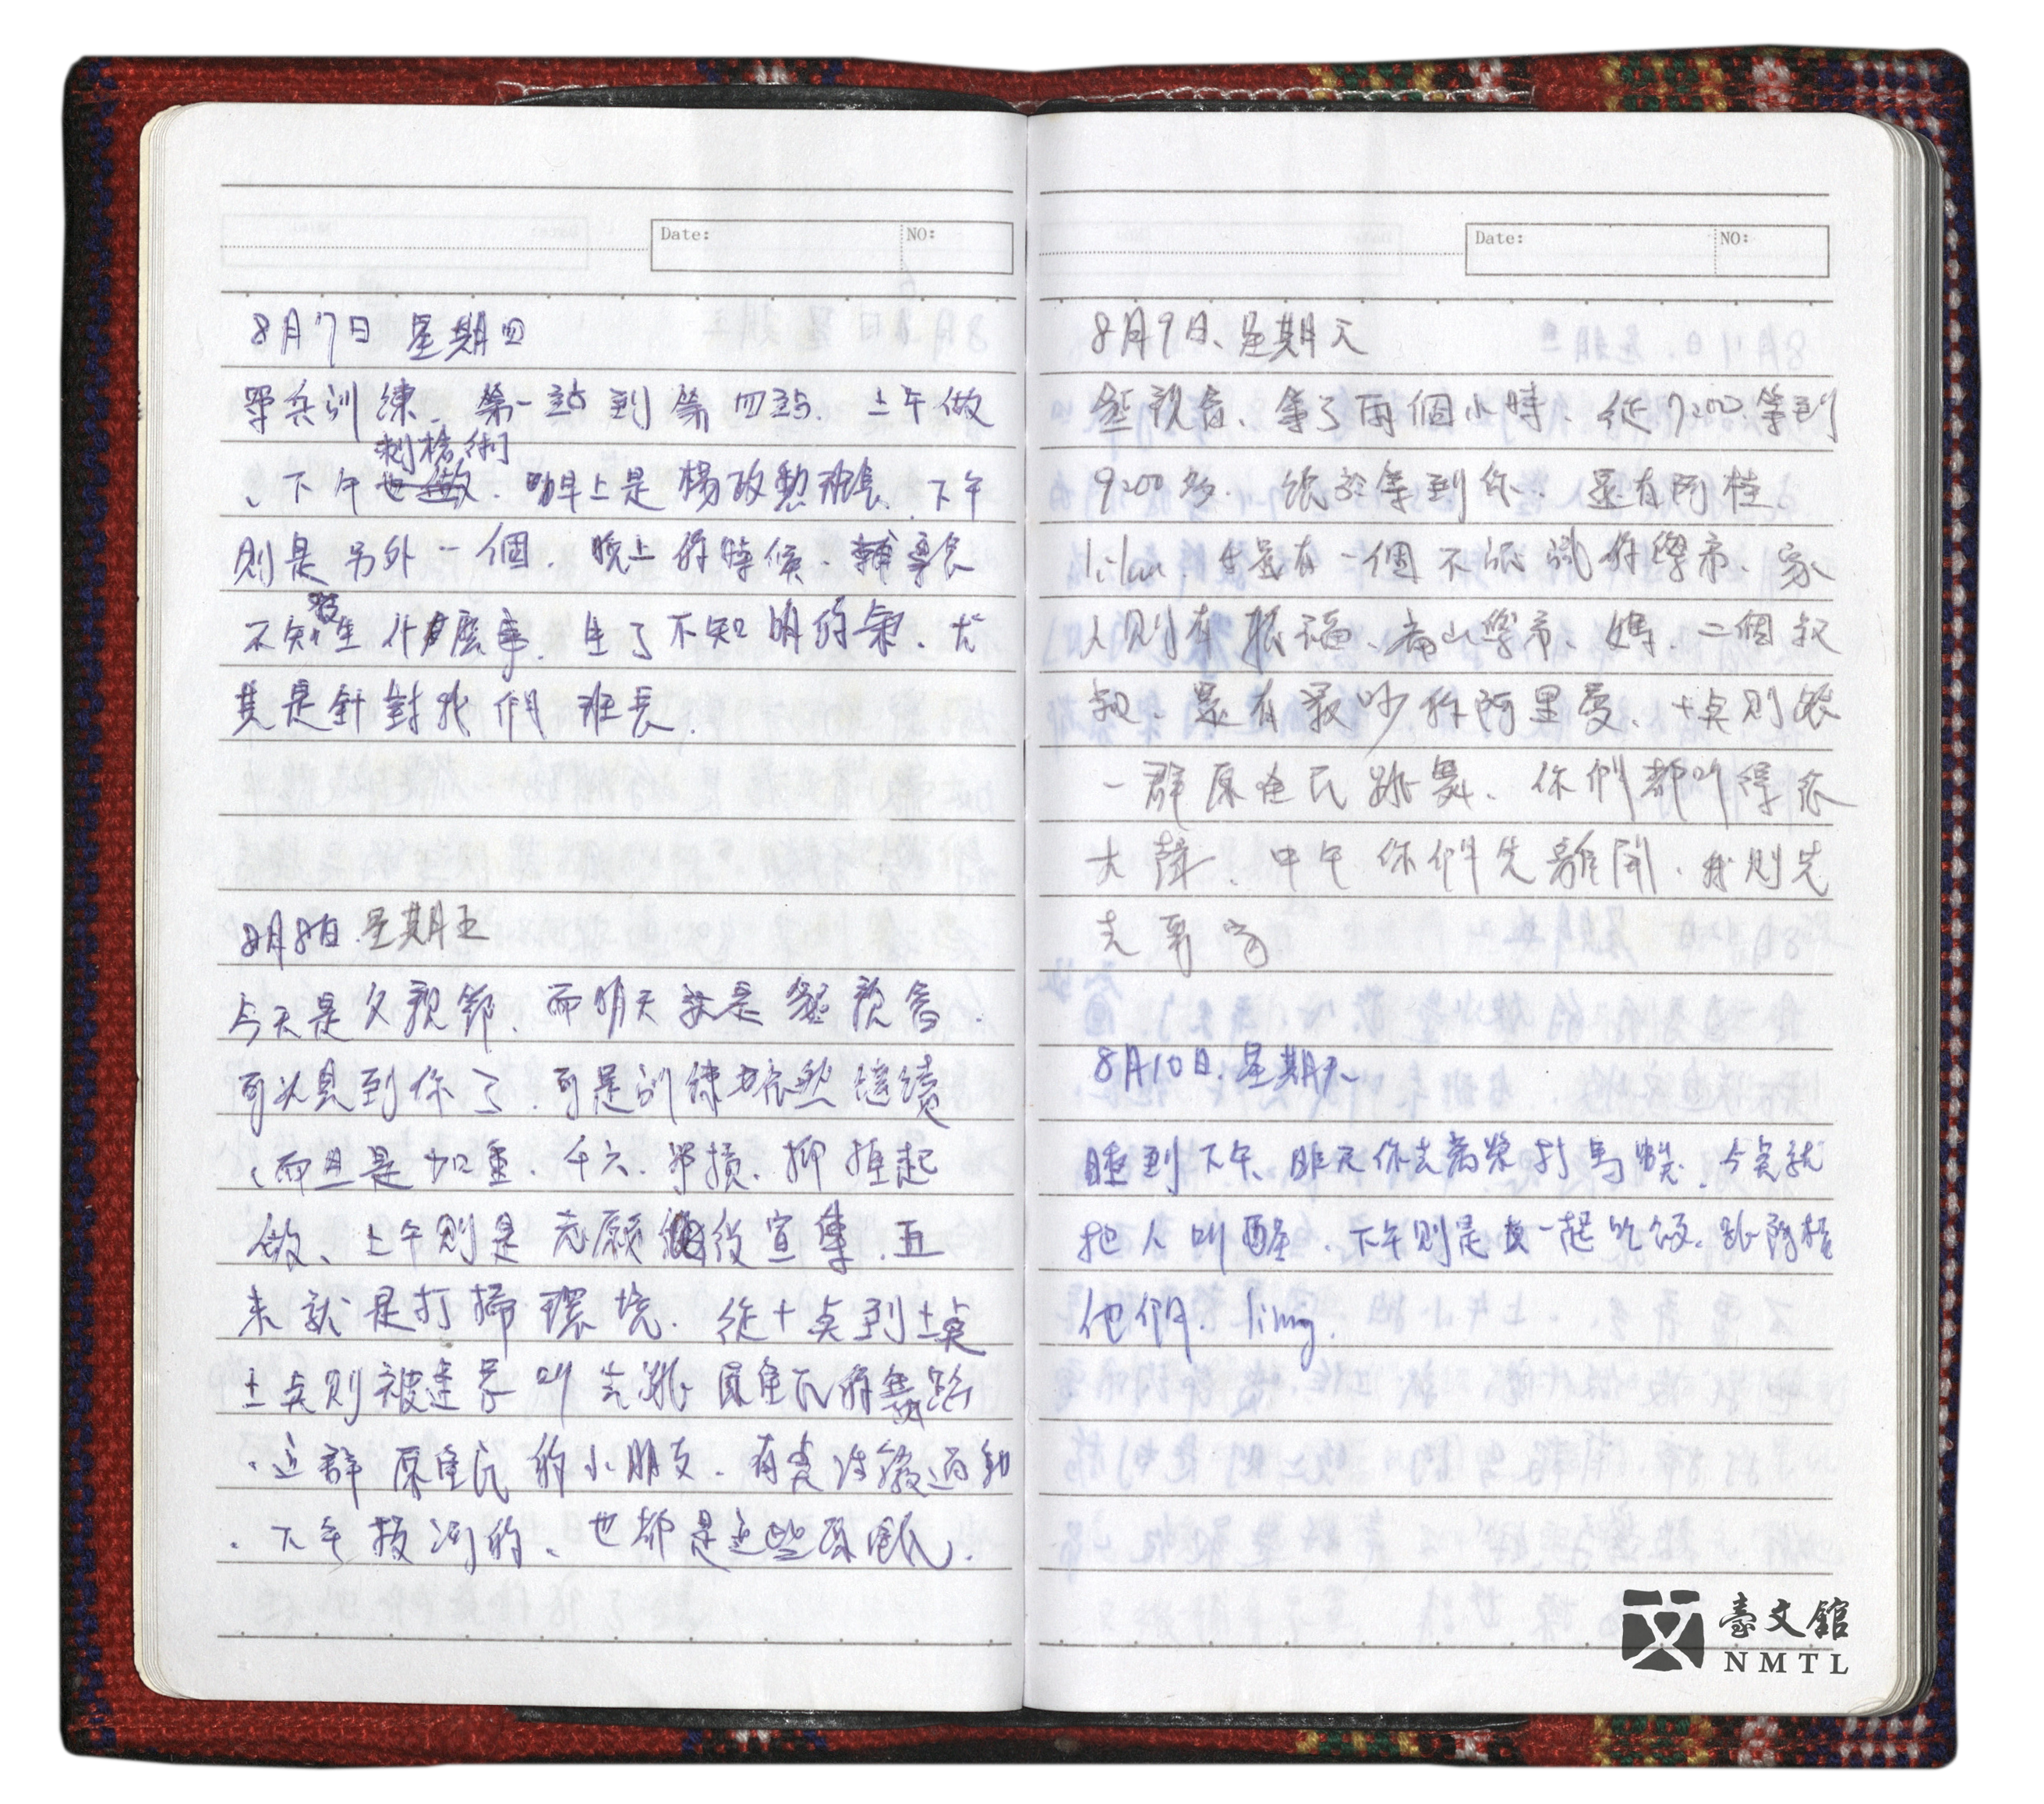 Date: NO:
8月7日 星期四
單兵訓練、第一站到第四站、上午做
刺槍術
、下午也做、早上是楊政勳班長、下午
則是另外一個、晚上的時候、輔導長
不知發生什麼事、生了不知明的氣、尤
其是針對我們班長、
8月8日、星期五
今天是父親節、而明天就是懇親會、
可以見到你了、可是訓練依然繼續
、而且是加重、千六、單槓、仰臥起
做、上午則是志願役宣集、五
來就是打掃環境、從十点到十一点
十一点則被連長叫去跳原住民的舞蹈
、這群原住民的小朋友、有責任
、下午拔河的、也都是這些原住民、
Date: NO:
8月9日、星期天
懇親會、等了兩個小時、從7200等到
9200多、終於等到你、還有阿桂、
還有一個不認識的學弟、家
人則有振福、學弟、媽、二個叔
叔、還有最吵的阿里曼、十点則跟
一群原住民跳舞、你們都叫得很
大聲、中午你們先離開、我則先
去哥家
8月10日、星期天
睡到下午、昨天你去萬榮打馬、今天就
把人叫醒、下午則是一起吃飯、跟阿桂
他們、
臺文館
NMTL